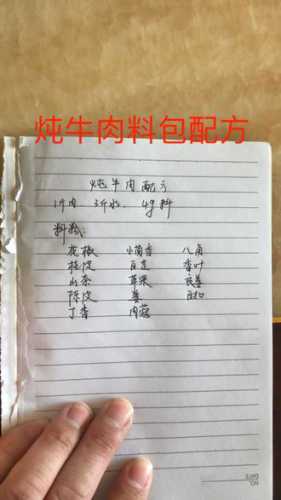 炖牛肉料包配方
炖牛肉配方
1斤肉 3斤水 4g料
料粉:
花椒 小茴香 八角
桂皮 白芷 香叶
山奈 草果 良姜
陈皮 姜 白扣
丁香 肉蔻